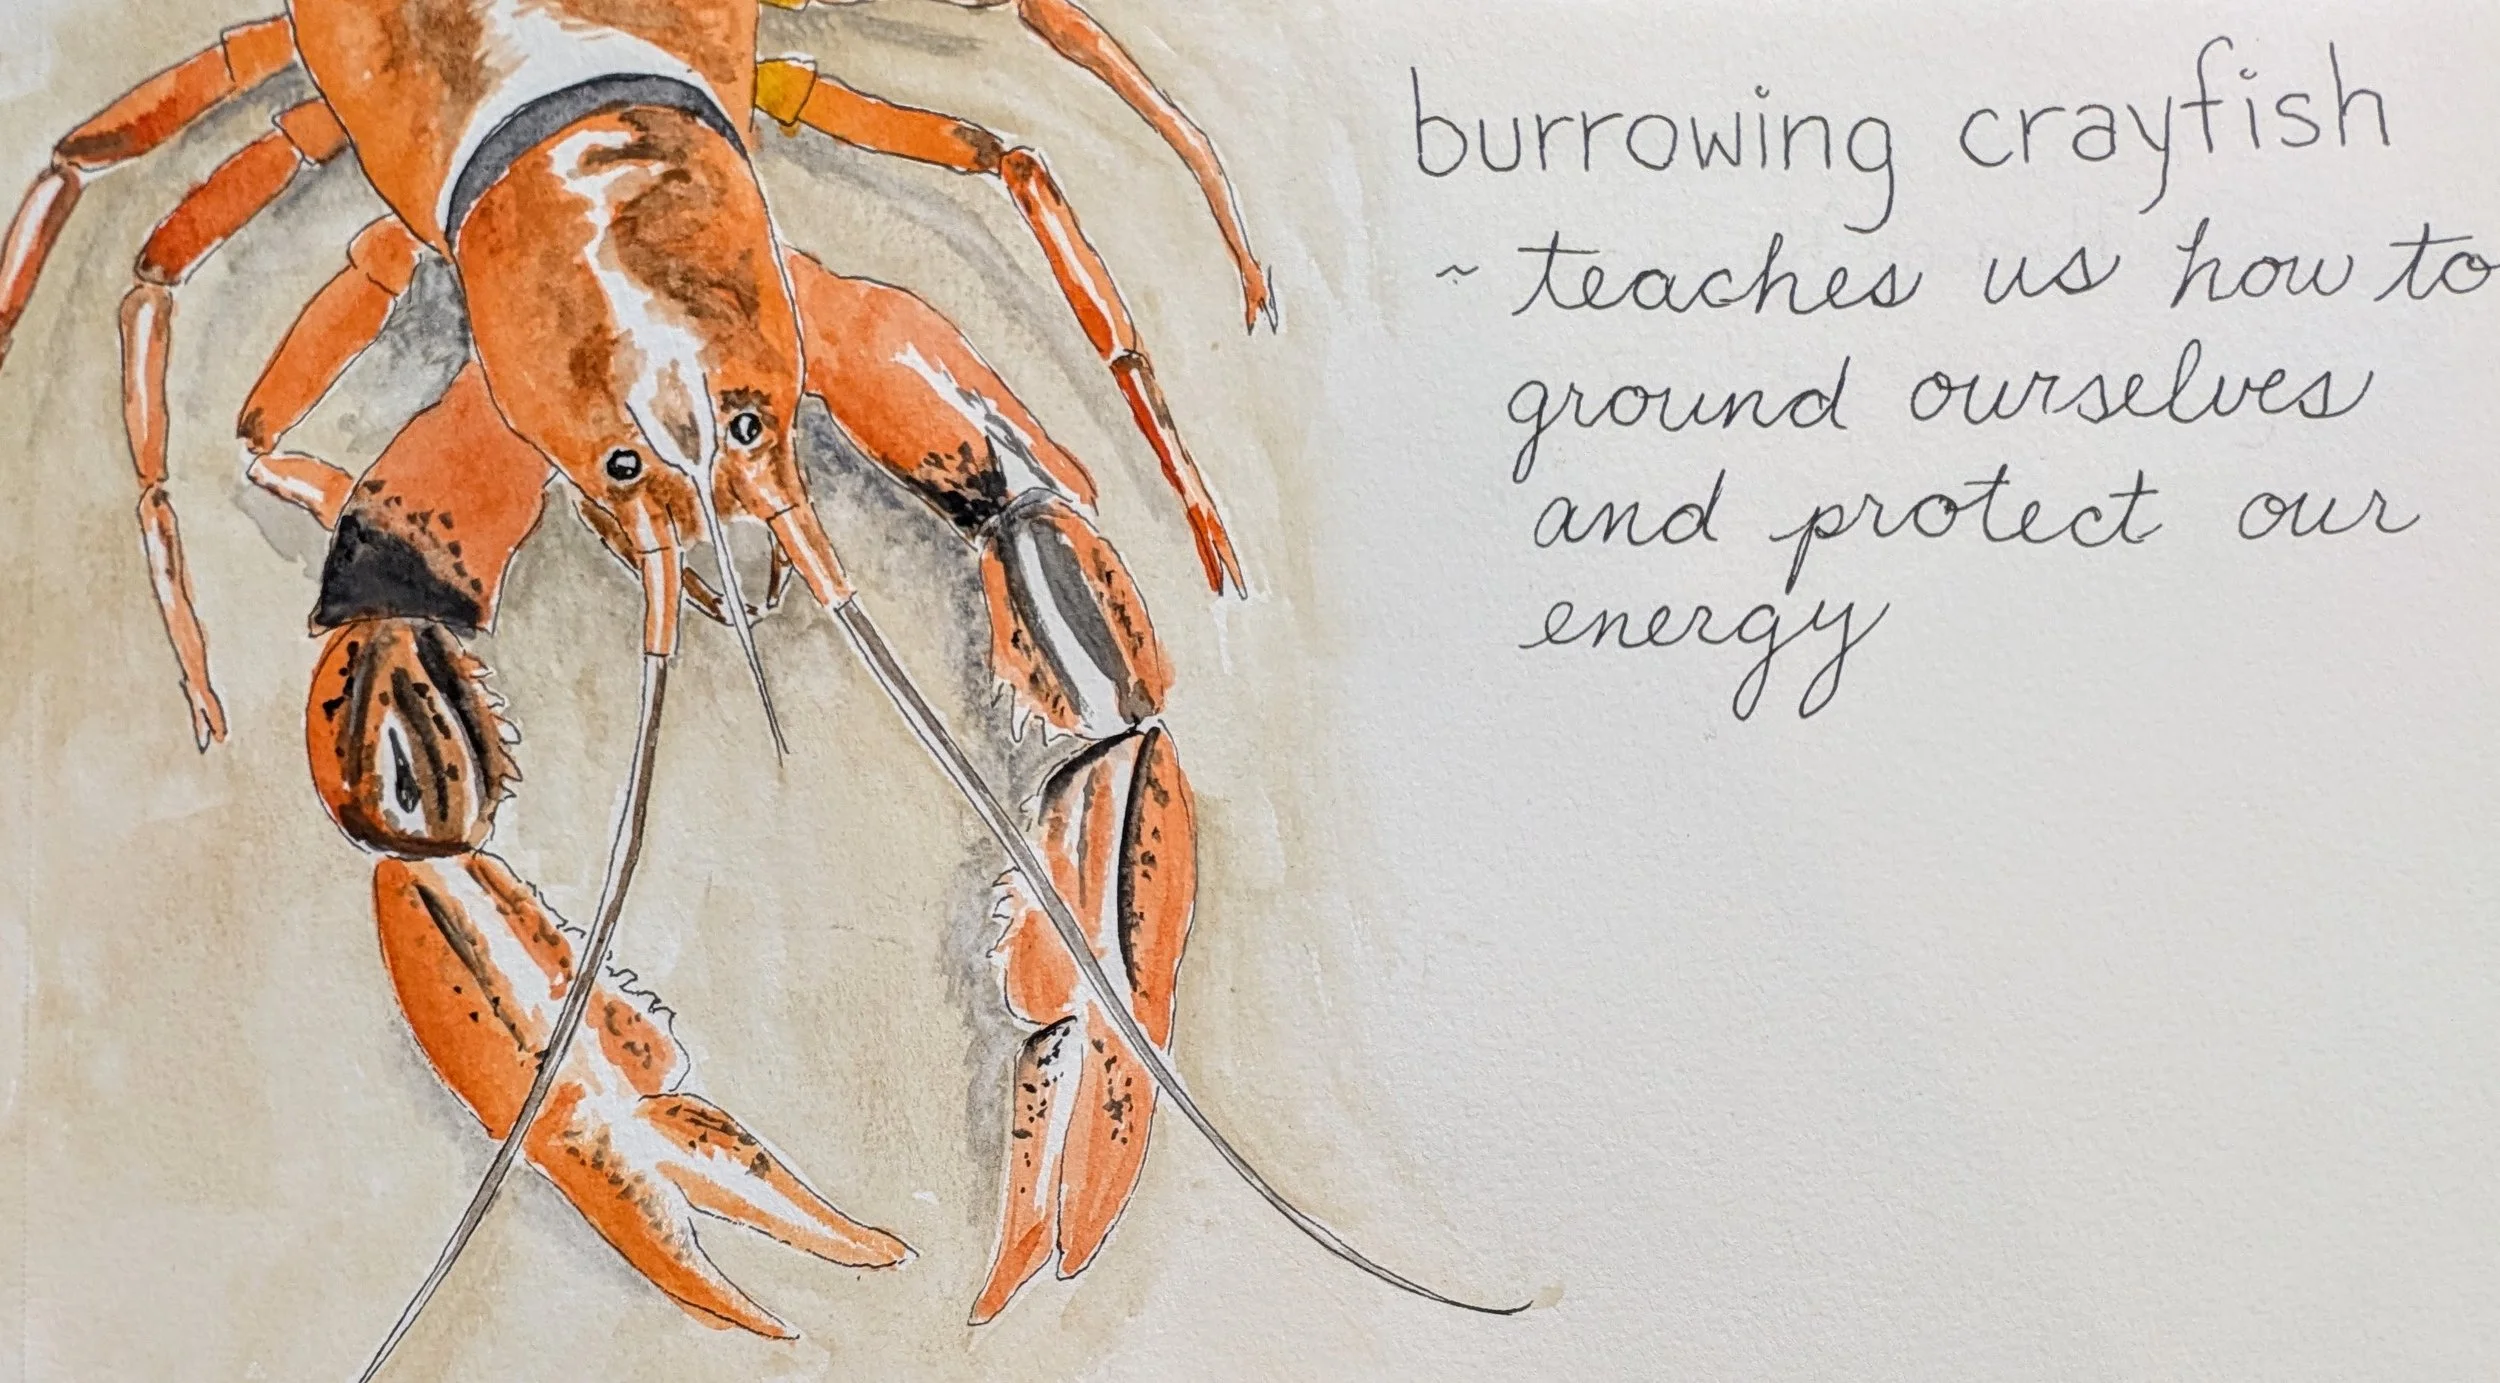 burrowing crayfish
~ teaches us how to
ground ourselves
and protect our
energy